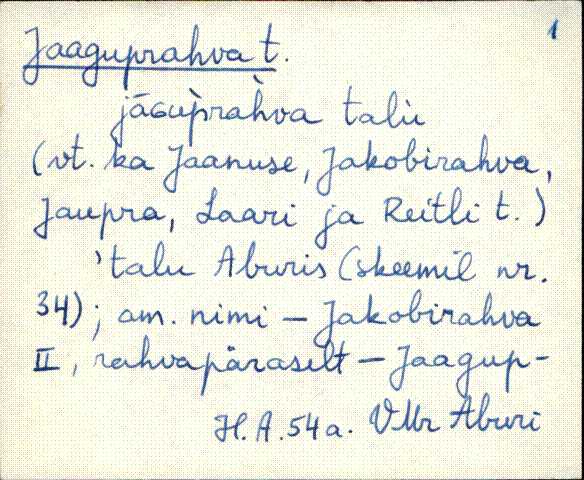 1
Jaaguprahva t.
jāɢu̬prahva talu
(vt. ka Jaanuse, Jakobirahva,
Jaupra, Laari ja Reitli t.)
'talu Aburis (skeemil nr.
34); am. nimi – Jakobirahva
II, rahvapäraselt – Jaagup-
H.A. 54 a. VMr Aburi